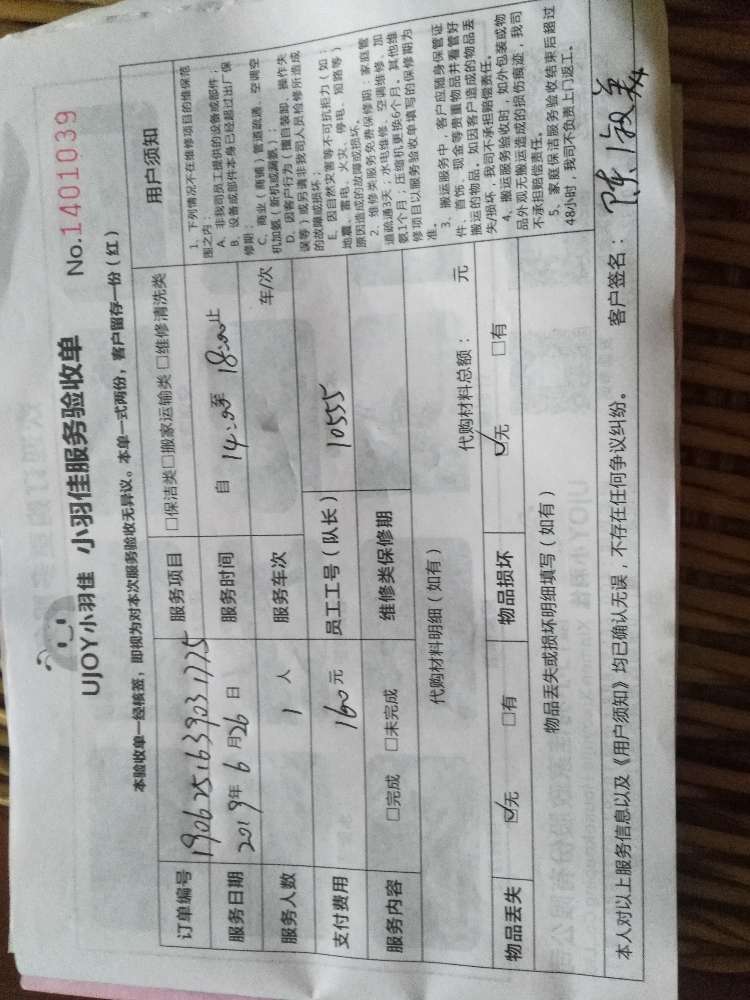 UJOY小羽佳 小羽佳服务验收单 No.1401039
本验收单一经核签，即视为对本次服务验收无异议。本单一式两份，客户留存一份（红）
订单编号 1906251639031775 服务项目 □保洁类□搬家运输类 □维修清洗类
服务日期 2019年 6 月26 日 服务时间 自 14:00至 18:00止
服务人数 1 人 服务车次 车/次
支付费用 160元 员工工号（队长） 10555
服务内容 □完成 □未完成 维修类保修期
代购材料明细（如有）
代购材料总额： 元
物品丢失 ☑无 □有 物品损坏 ☑无 □有
物品丢失或损坏明细填写（如有）
用户须知
1、下列情况不在维修项目的维保范
围之内：
A、非我司员工提供的设备或部件；
B、设备或部件本身已经超过出厂保
修期；
C、商业（商铺）管道疏通、空调空
机加氨（新机或漏氨）；
D、因客户行为（擅自装卸、操作失
误等）或另请非我司人员检修所造成
的故障或损坏；
E、因自然灾害等不可抗拒力（如：
地震、雷电、火灾、停电、短路等）
原因造成的故障或损坏。
2、维修类服务免费保修期：家庭管
道疏通3天；水电维修、空调维修、加
氨1个月；压缩机更换6个月。其他维
修项目以服务验收单填写的保修期为
准。
3、搬运服务中，客户应随身保管证
件、首饰、现金等贵重物品并看管好
搬运的物品，如因客户造成的物品丢
失/损坏，我司不承担赔偿责任。
4、搬运服务验收时，如外包装或物
品外观无搬运造成的损伤痕迹，我司
不承担赔偿责任。
5、家庭保洁服务验收结束后超过
48小时，我司不负责上门返工。
本人对以上服务信息以及《用户须知》均已确认无误，不存在任何争议纠纷。 客户签名： 陈淑美